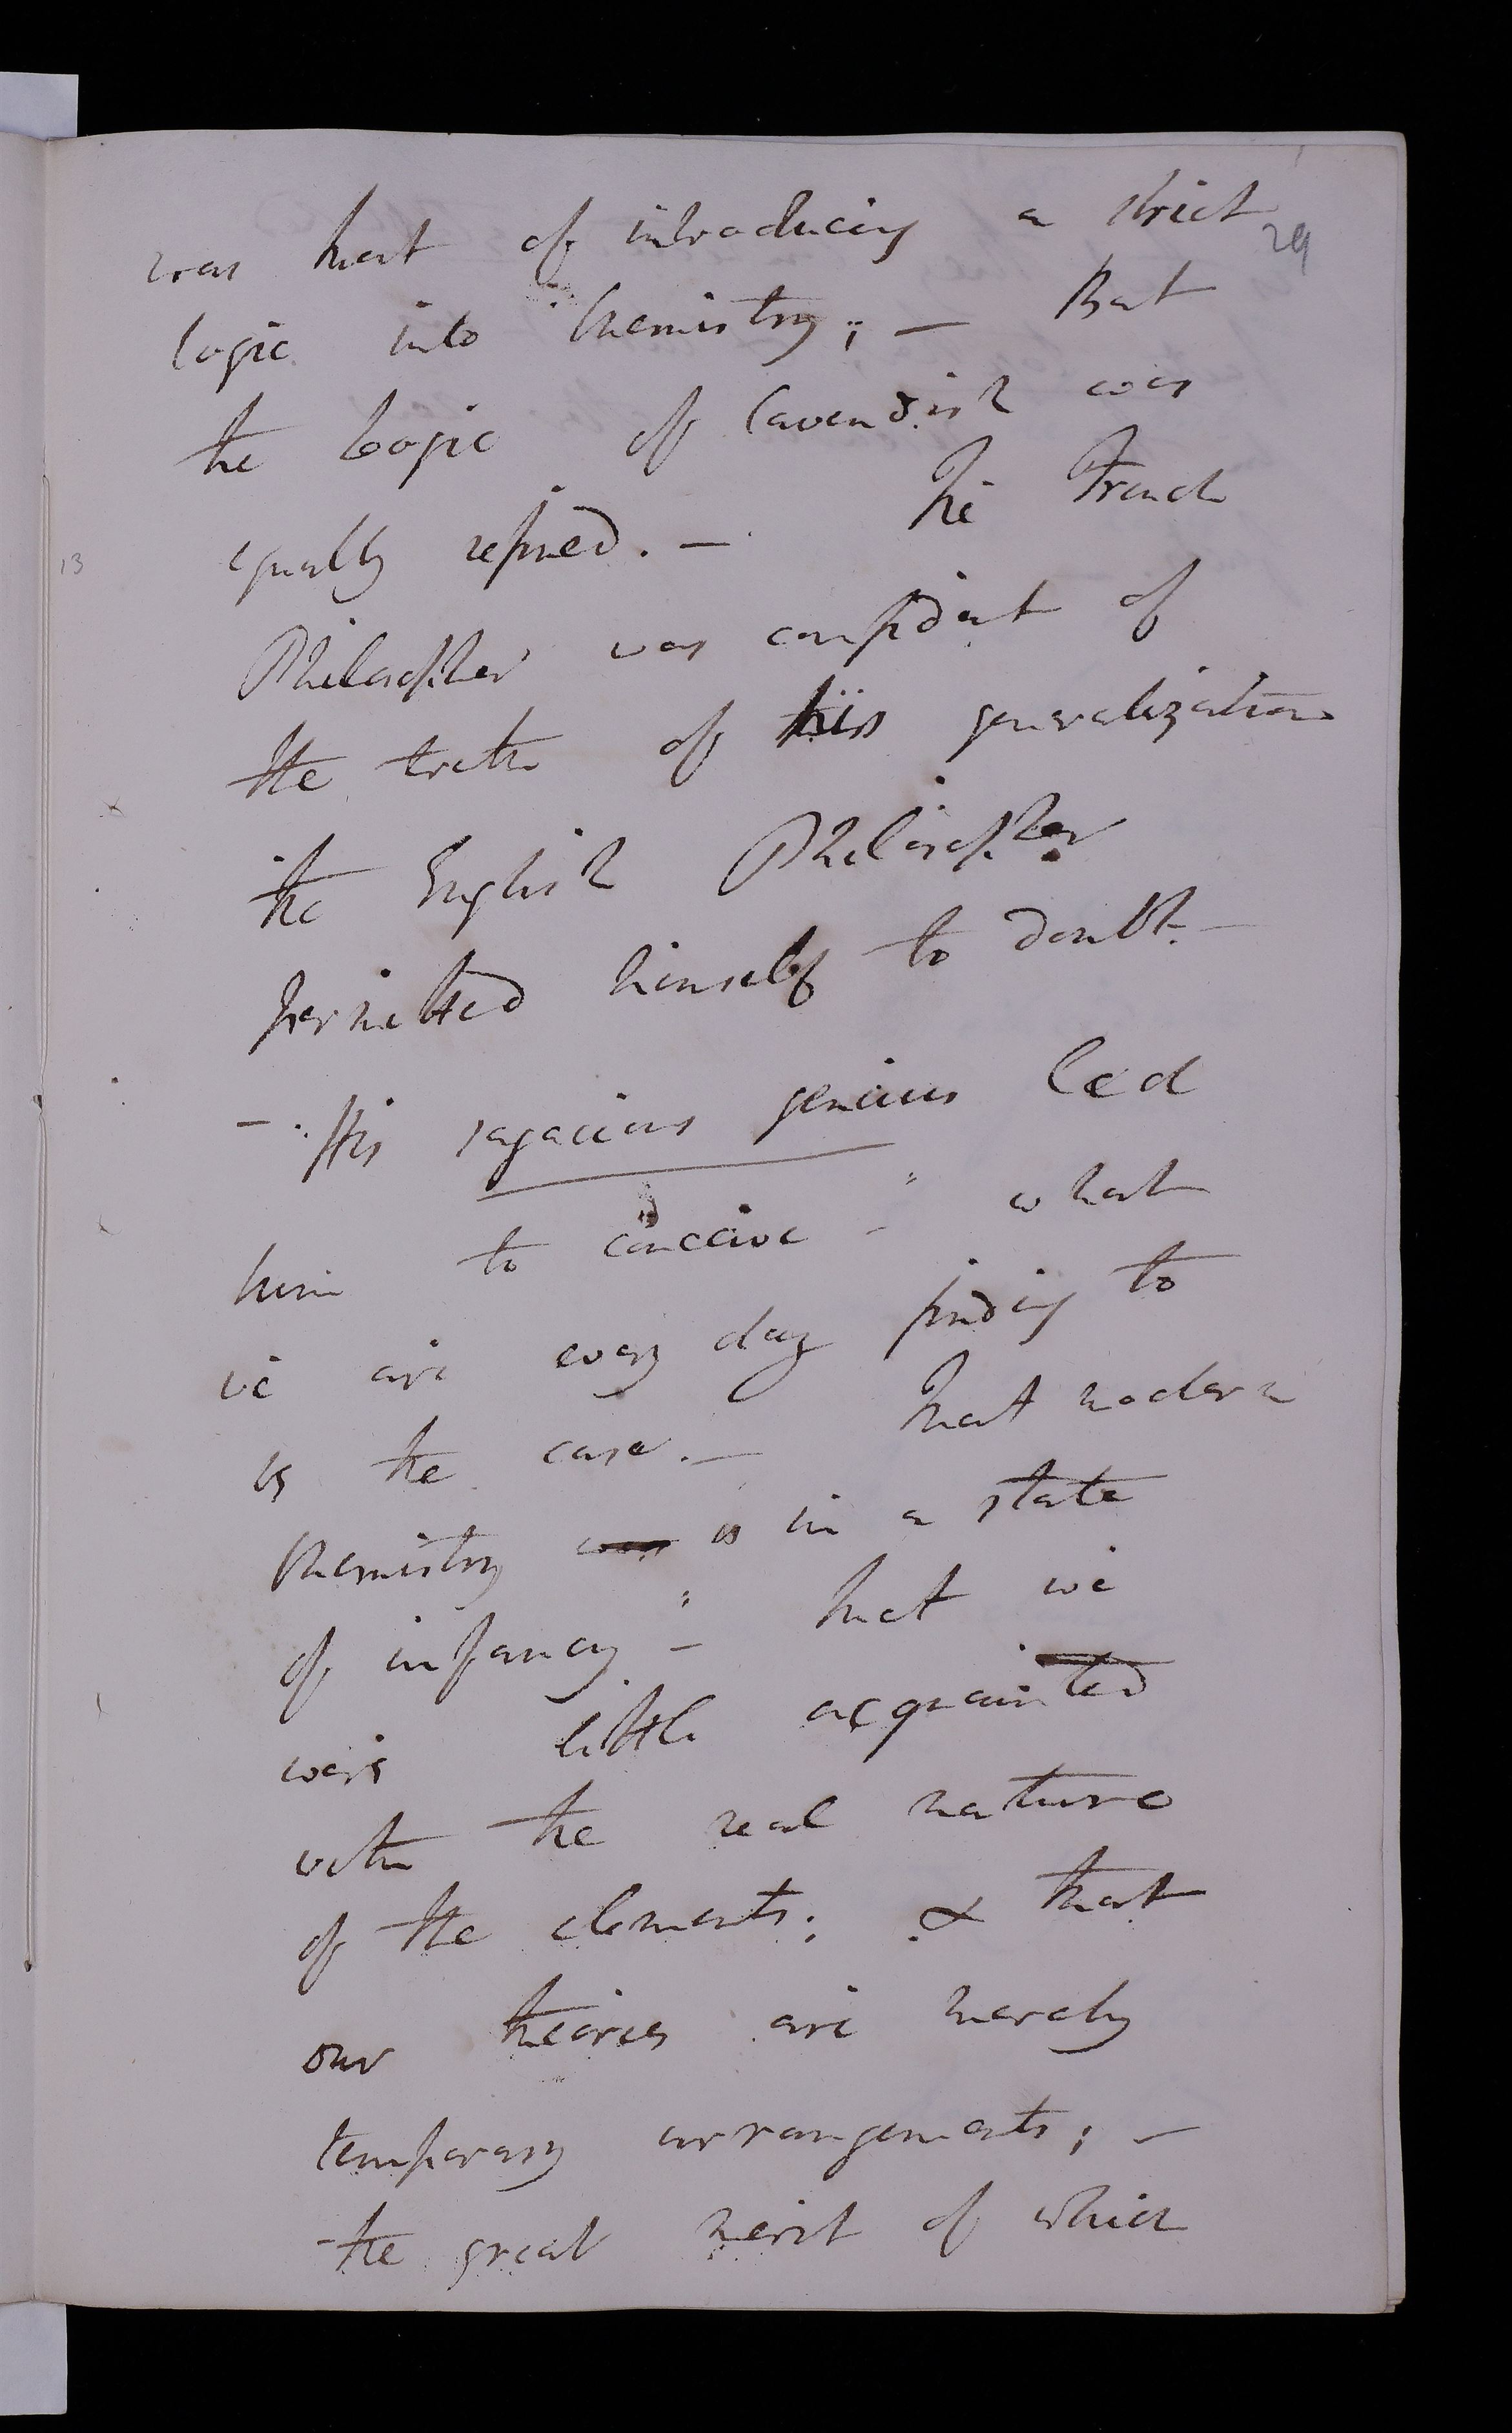 was that of introducing a strict
29
logic into Chemistry; — But
the logic of Cavendish was
equally refined. — The French
13
Philosopher was confident of
the truth of his generalizations
the English Philosopher
permitted himself to doubt. —
— His sagacious genius led
him to conceive — what
we are every day finding to
be the case. — That modern
Chemistry was is in a state
of infancy — that we
were little acquainted
with the real nature
of the elements; & that
our theories are merely
temporary arrangements; —
the great merit of which